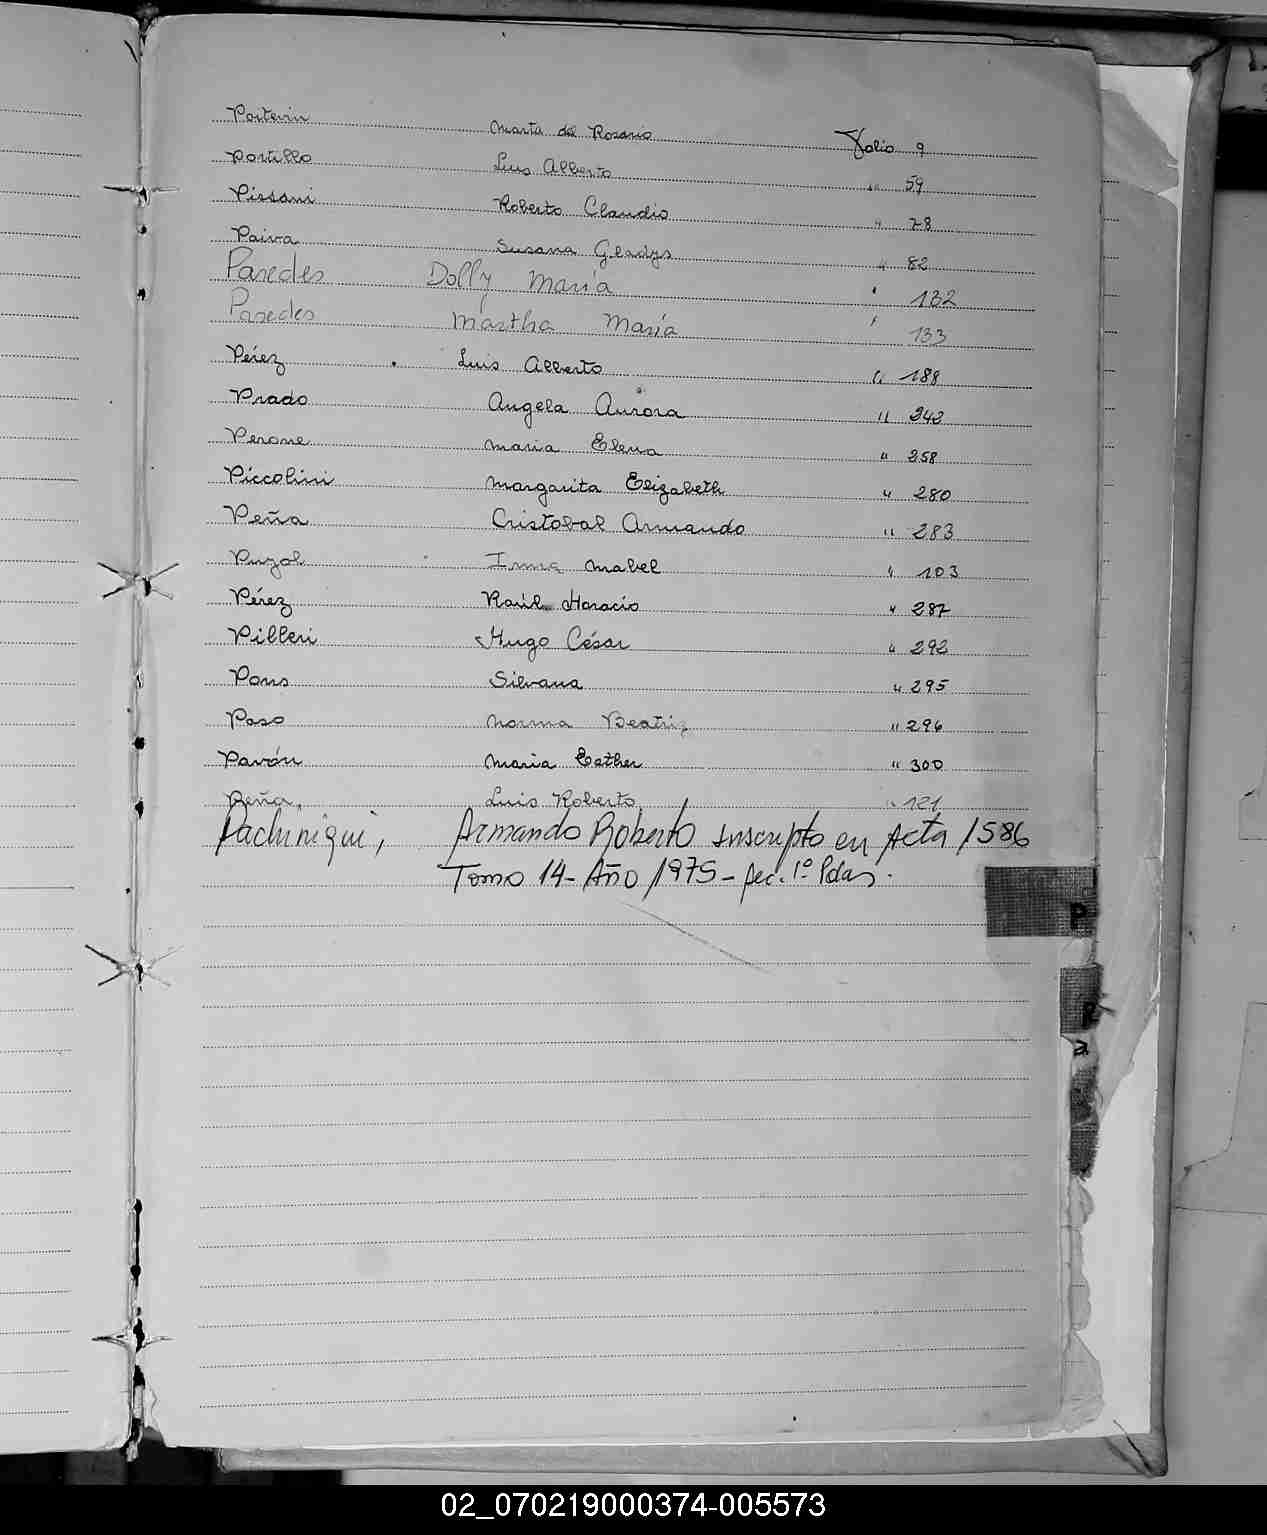 Poitevin Marta del Rosario Folio 9
Portillo Luis Alberto " 59
Pissani Roberto Claudio " 78
Paiva Susana Gladys " 82
Paredes Dolly María " 132
Paredes Martha María " 133
Pérez Luis Alberto " 188
Prado Angela Aurora " 242
Perone Maria Elena " 258
Piccolini Margarita Elizabeth " 280
Peña Cristobal Armando " 283
Puzol Irma Mabel " 103
Pérez Raúl Horacio " 287
Pilleri Hugo César " 292
Pons Silvana " 295
Paso Norma Beatriz " 296
Pavón Maria Esther " 300
Peña, Luis Roberto " 121
Pachiniqui, Armando Roberto inscripto en Acta 1586
Tomo 14 - Año 1975 - Sec. 1º Pdas.
P
R
a
02_070219000374-005573